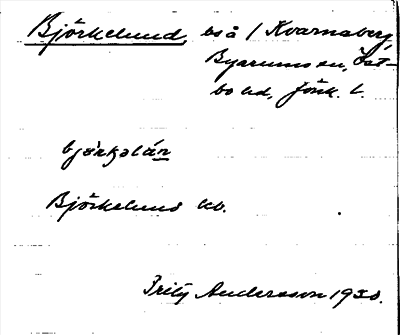 Björkelund, bs å / Kvarnaberg,
Byarums sn, Öst-
bo hd, Jönk. l.
Björkelund kb.
Fritz Andersson 1930.